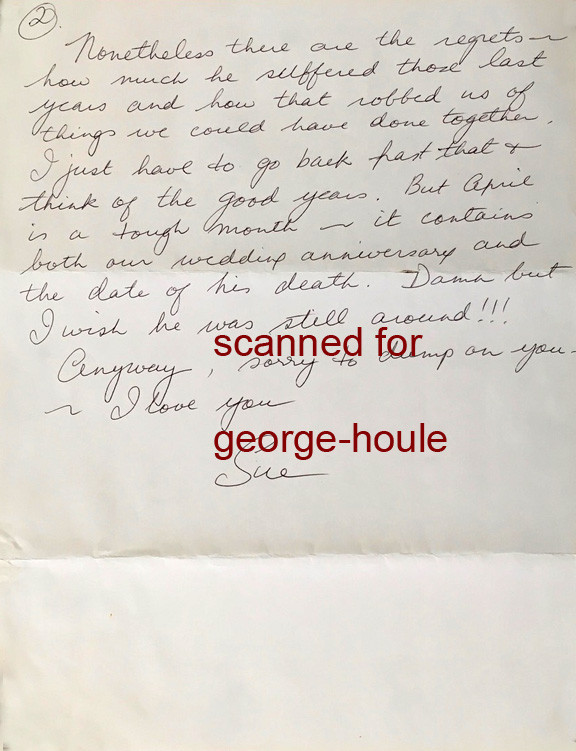 2.
Nonetheless there are the regrets ~
how much he suffered those last
years and how that robbed us of
things we could have done together.
I just have to go back past that +
think of the good years. But April
is a tough month ~ it contains
both our wedding anniversary and
the date of his death. Damn but
I wish he was still around!!!
scanned for
Anyway, sorry to dump on you -
~ I love you
george-houle
Sue